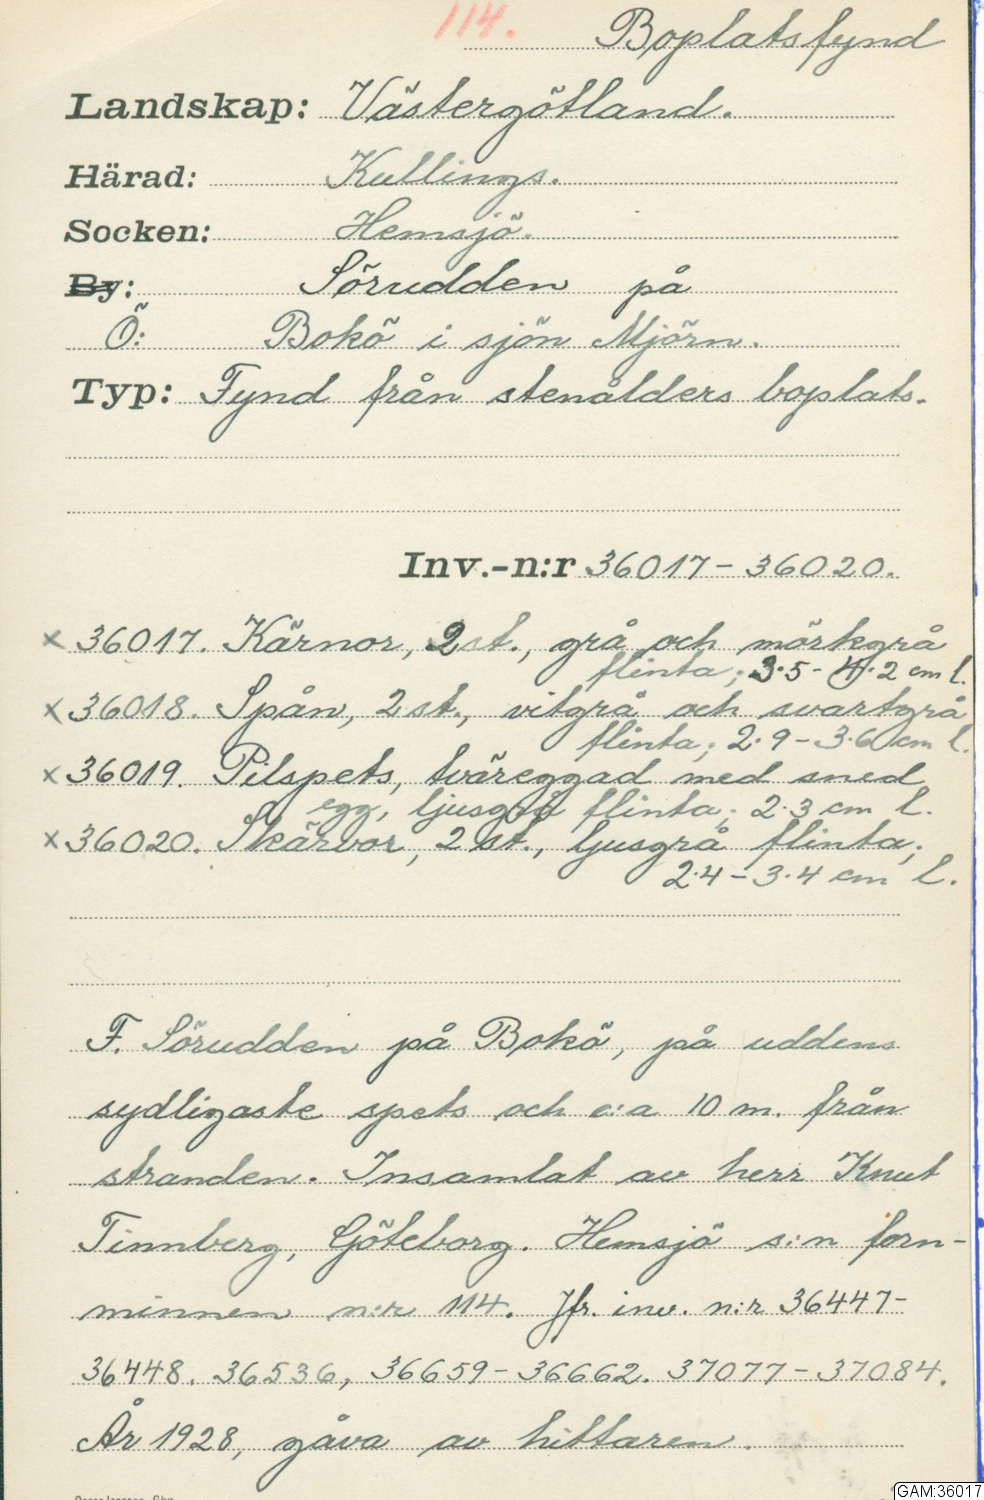 114.
Boplatsfynd
Landskap: Västergötland.
Härad: Kullings.
Socken: Hemsjö.
By: Sörudden på
Ö: Bokö i sjön Mjörn.
Typ: Fynd från stenålders boplats.
Inv.-n:r 36017-36020.
x 36017. Kärnor, 2 st., grå och mörkgrå
flinta; 3.5-4.2 cm l.
x 36018. Spån, 2 st., vitgrå och svartgrå
flinta; 2.9-3.6 cm l.
x 36019. Pilspets, tväreggad med sned
egg, ljusgrå flinta; 2.3 cm l.
x 36020. Skärvor, 2 st., ljusgrå flinta;
2.4-3.4 cm l.
F. Sörudden på Bokö, på uddens
sydligaste spets och c:a 10 m. från
stranden. Insamlat av herr Knut
Tinnberg, Göteborg. Hemsjö s:n forn-
minnen n:r 114. Jfr. inv. n:r 36447-
36448. 36536, 36659-36662. 37077-37084.
År 1928, gåva av hittaren.
GAM:36017